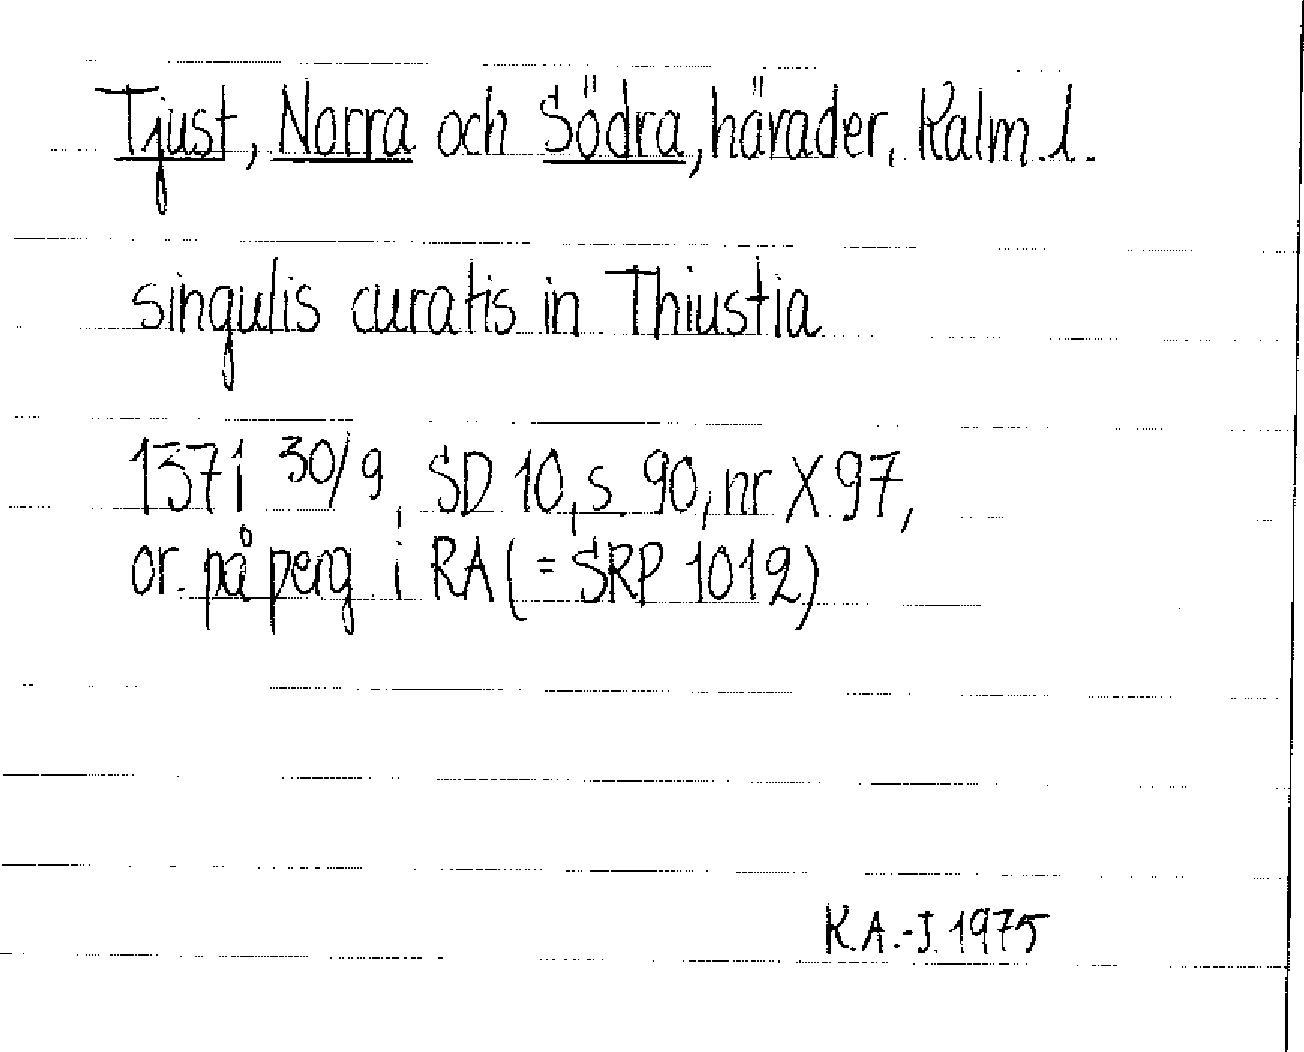 Tjust, Norra och Södra, härader, Kalm. l.
singulis curatis in Thiustia
1371 30/9, SD 10, s. 90, nr X 97,
or. på perg. i RA (= SRP 1012)
K.A.-J. 1975